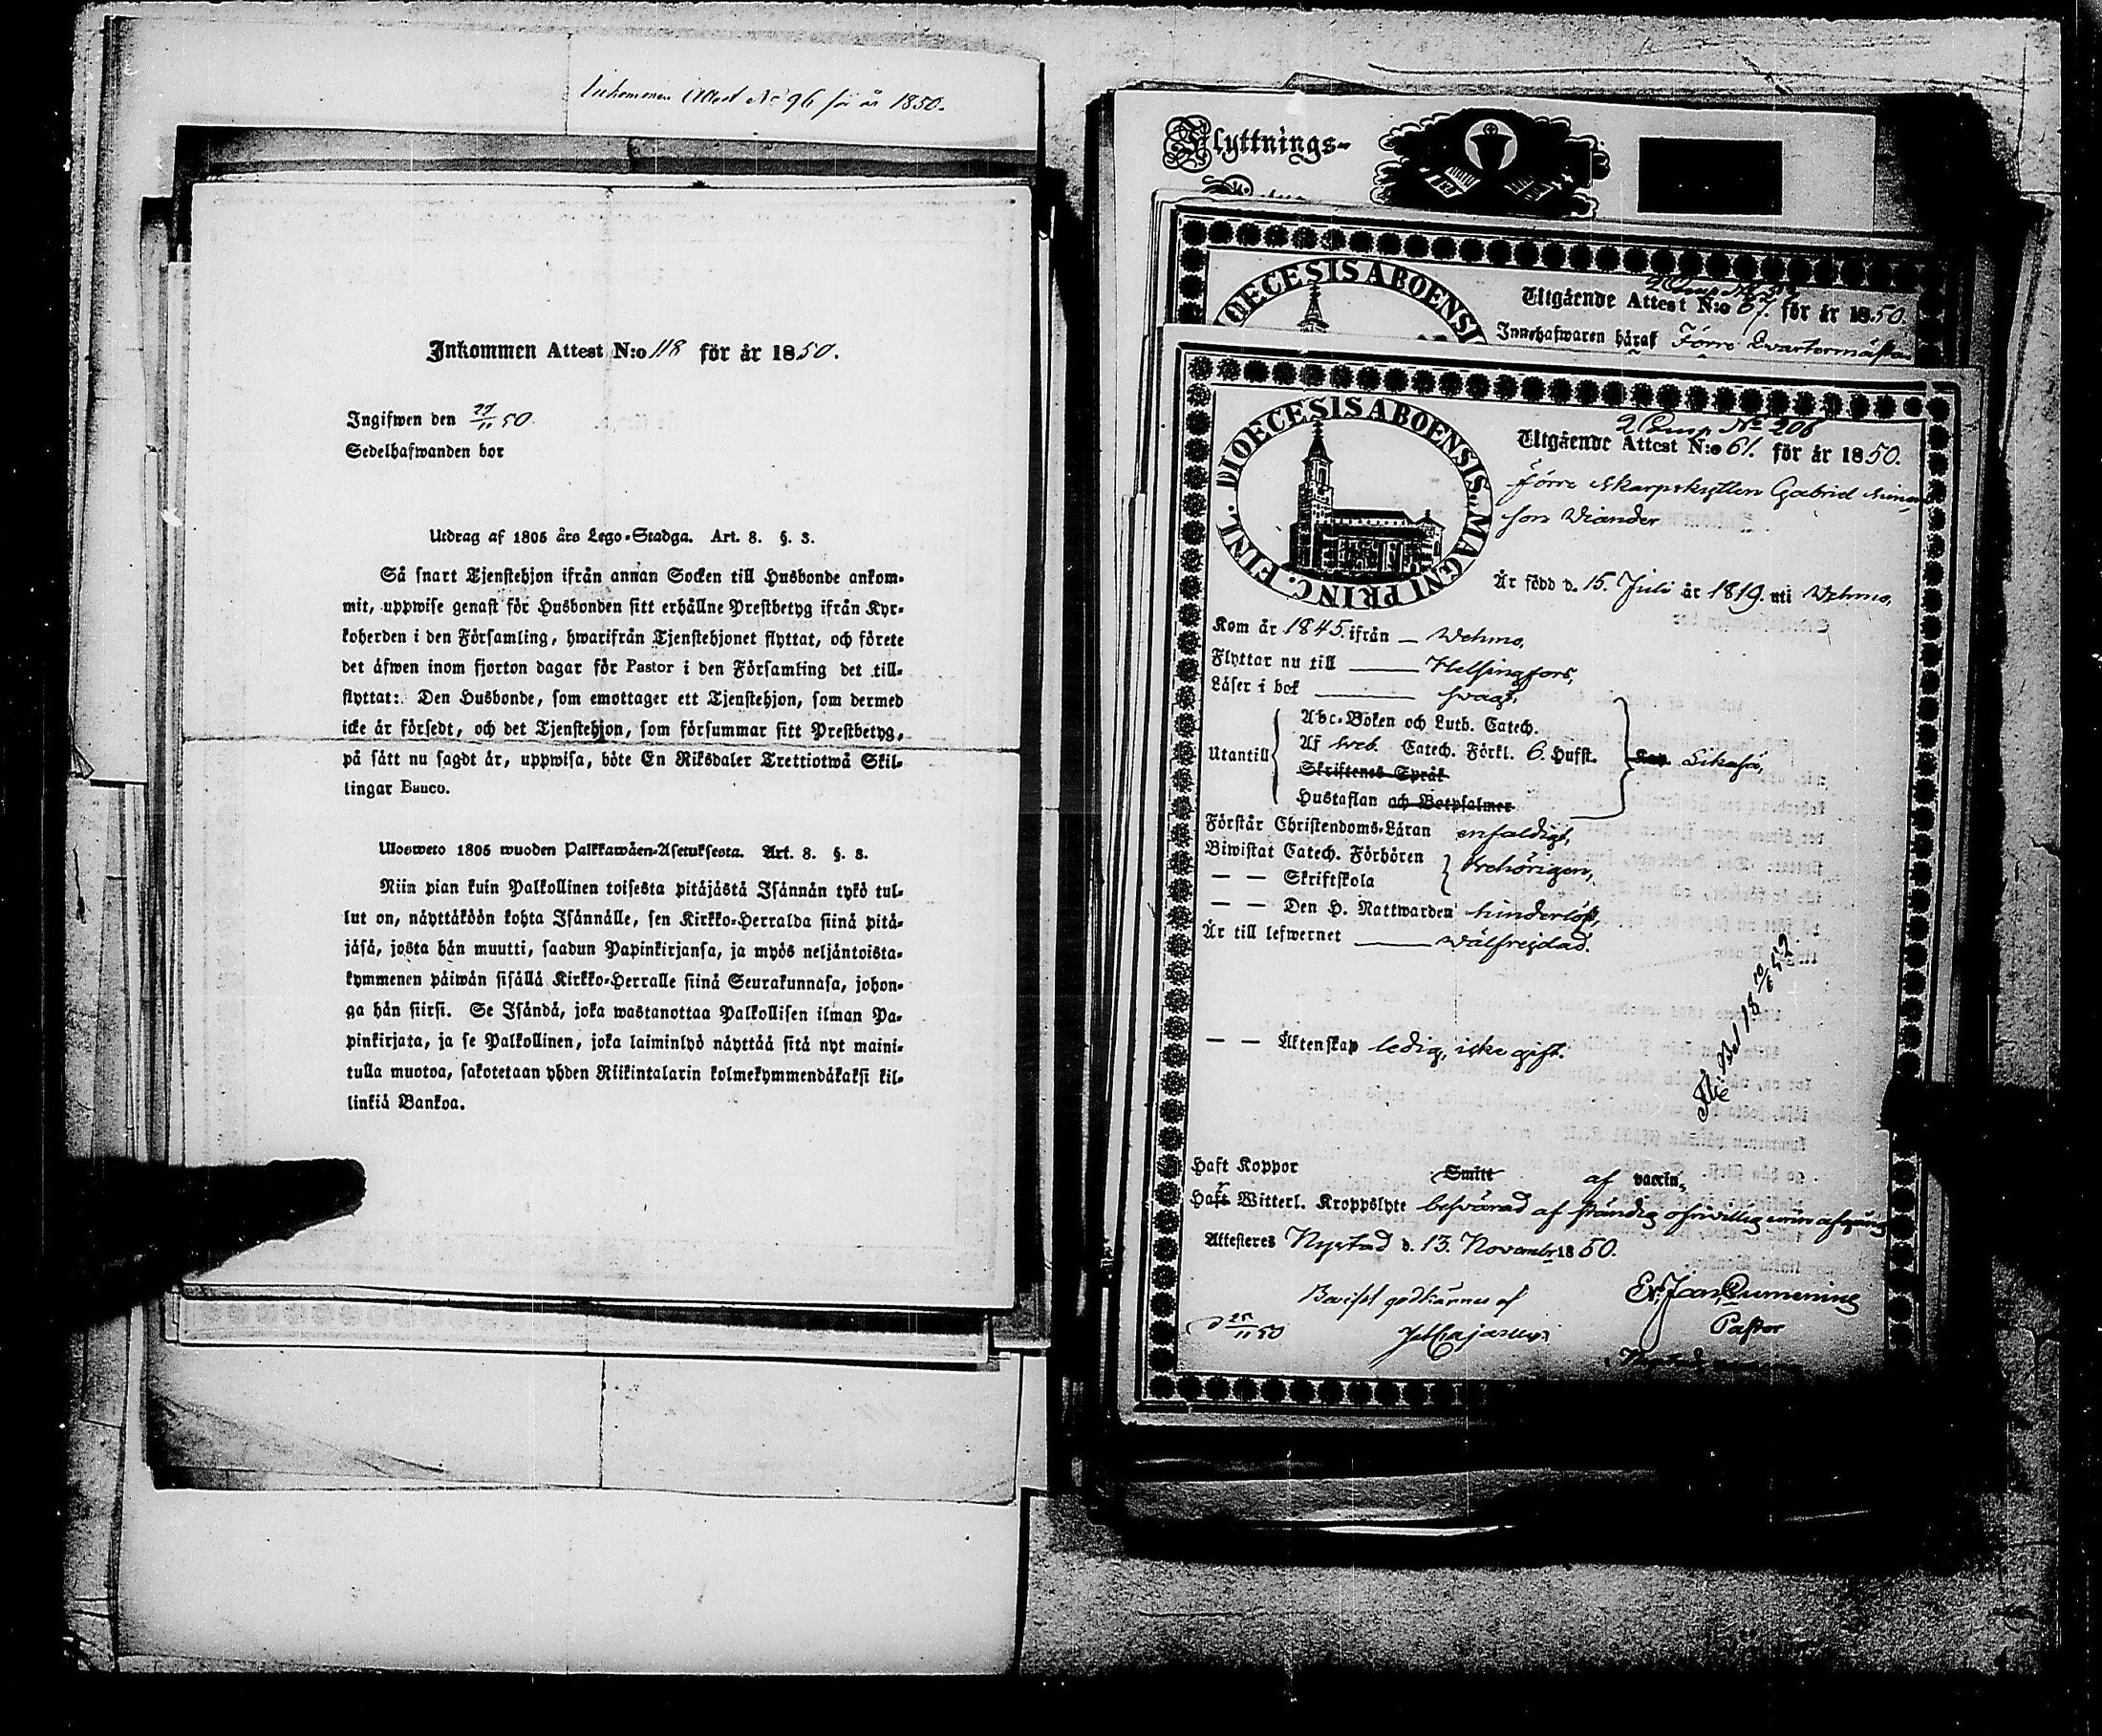 Inkommen Attest No 96 för år 1850.
Inkommen Attest N:o 118 för år 1850.
Ingifwen den 27/11 50.
Sedelhafwanden bor
Utdrag af 1805 års Lego-Stadga. Art. 8. §. 3.
Så snart Tjenstehjon ifrån annan Socken till Husbonde ankom-
mit, uppwise genast för Husbonden sitt erhållne Prestbetyg ifrån Kyr-
koherden i den Församling, hwarifrån Tjenstehjonet flyttat, och förete
det äfwen inom fjorton dagar för Pastor i den Församling det till-
flyttat: Den Husbonde, som emottager ett Tjenstehjon, som dermed
icke är försedt, och det Tjenstehjon, som försummar sitt Prestbetyg,
på sätt nu sagdt är, uppwisa, böte En Riksdaler Trettiotwå Skil-
lingar Banco.
Ulosweto 1805 wuoden Palkkawäen-Asetuksesta. Art. 8. §. 3.
Niin pian kuin Palkollinen toisesta pitäjästä Isännän tykö tul-
lut on, näyttäköön kohta Isännälle, sen Kirkko-Herralda siinä pitä-
jäsä, josta hän muutti, saadun Papinkirjansa, ja myös neljäntoista-
kymmenen päiwän sisällä Kirkko-Herralle siinä Seurakunnasa, johon-
ga hän siirsi. Se Isändä, joka wastanottaa Palkollisen ilman Pa-
pinkirjata, ja se Palkollinen, joka laiminlyö näyttää sitä nyt maini-
tulla muotoa, sakotetaan yhden Riikintalarin kolmekymmendäkaksi kil-
linkiä Bankoa.
Flyttnings-
DIOECESIS ABOENSI
Utgående Attest N:o 67. för år 1850.
Innehafwaren häraf Förre Qvartermästa
DIOECESIS ABOENSIS. MAGNI PRINC. FINL.
2 Comp. No 206
Utgående Attest N:o 61. för år 1850.
Förre Skarpskytten Gabriel Simons
son Viander
Är född d. 15. Juli år 1819. uti Wehmo,
Kom år 1845. ifrån — Wehmo,
Flyttar nu till — Helsingfors,
Läser i bok — svagt,
Abc-Boken och Luth. Catech.
Utantill Af Sveb. Catech. Förkl. 6. Hufst. Kap. Likaså,
Skriftenes Språk
Hustaflan och Botpsalmer
Förstår Christendoms-Läran enfaldigt,
Biwistat Catech. Förhören
— — Skriftskola behörigen,
— — Den H. Nattwarden hinderlöst,
Är till lefwernet — wälfrejdad.
— — Äktenskap ledig, icke gift.
Haft Koppor Smitt af vaccin,
Haft Witterl. Kroppslyte besvärad af ständig ofrivillig urin afgång
Attesteres Nystad d. 13. Novembr 1850.
Bevisst godkännes af
d 25/11 50
Pastor